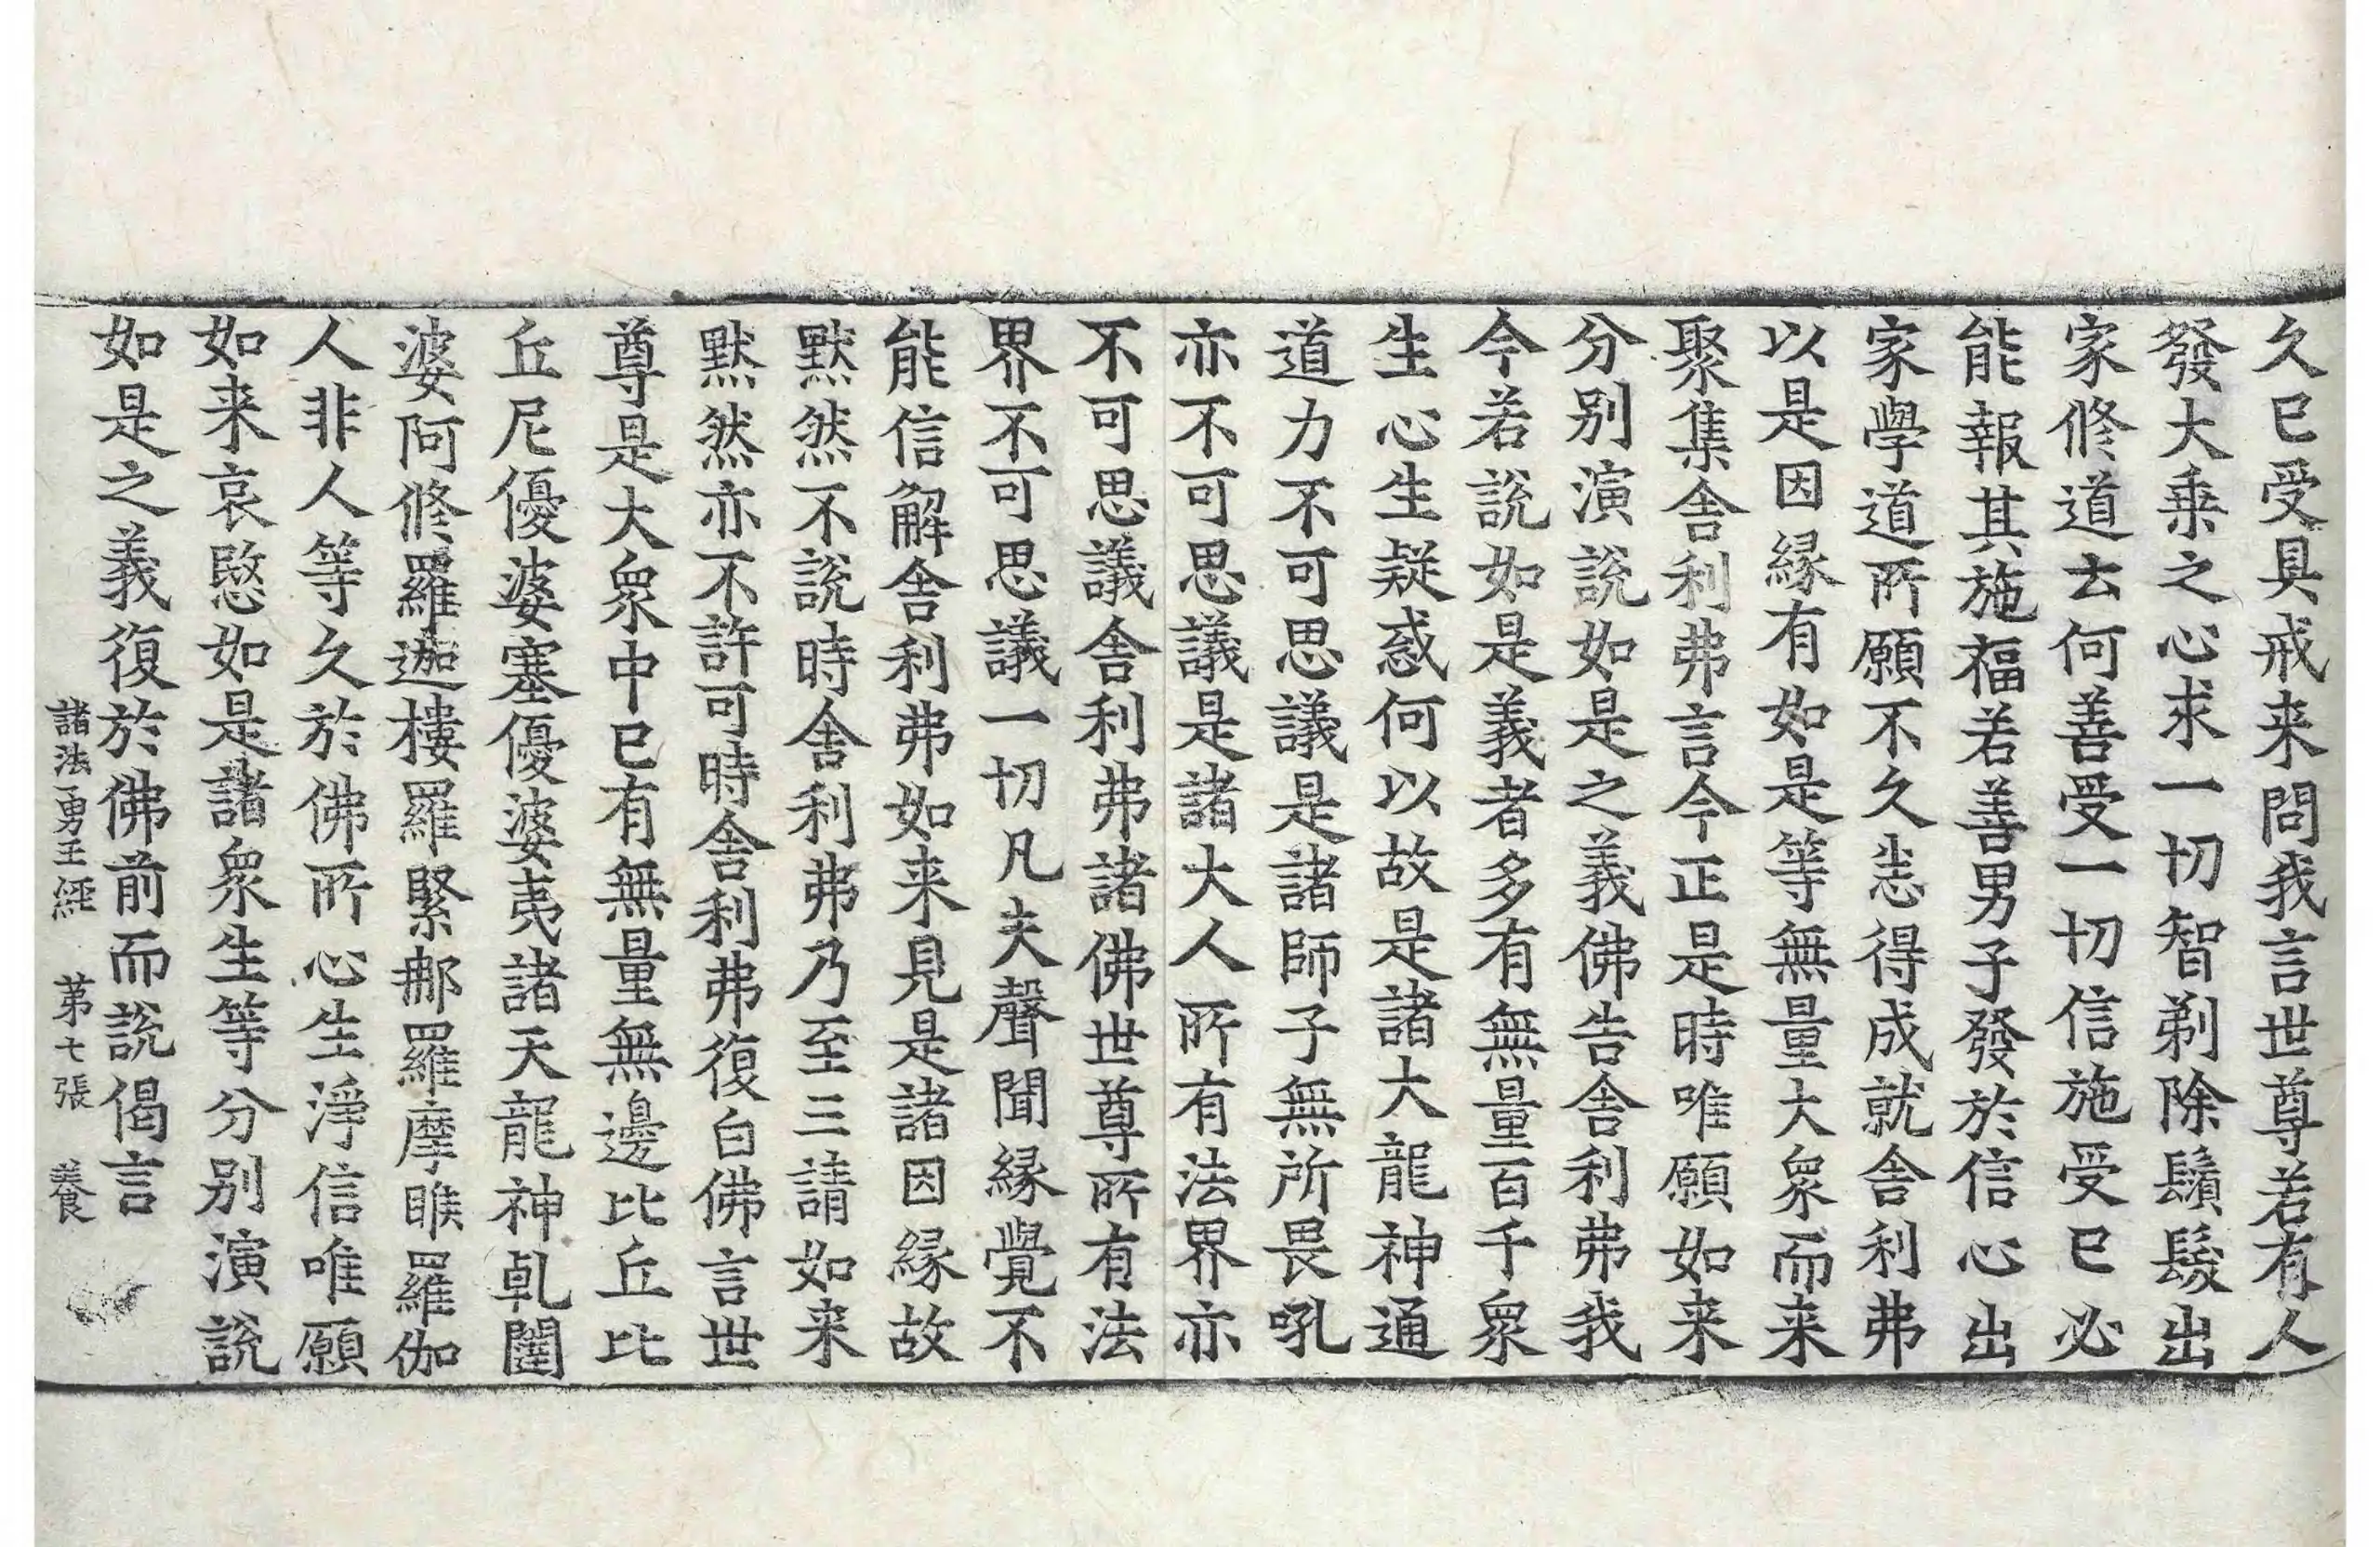 久已受具戒来問我言世尊若有人
發大乗之心求一切智剃除鬚髮出
家修道去何善受一切信施受已必
能報其施福若善男子發於信心出
家學道所願不久悉得成就舎利弗
以是因緣有如是等無量大衆而来
聚集舎利弗言今正是時唯願如来
分别演說如是之義佛告舎利弗我
今若說如是義者多有無量百千衆
生心生疑惑何以故是諸大龍神通
道力不可思議是諸師子無所畏吼
亦不可思議是諸大人所有法界亦
不可思議舎利弗諸佛世尊所有法
界不可思議一切凡夫聲聞緣覺不
能信解舎利弗如来見是諸因緣故
黙然不說時舎利弗乃至三請如来
黙然亦不許可時舎利弗復白佛言世
尊是大衆中已有無量無邊比丘比
丘尼優婆塞優婆夷諸天龍神乹闥
婆阿修羅迦樓羅緊那羅摩睺羅伽
人非人等久於佛所心生淨信唯願
如来哀愍如是諸衆生等分别演說
如是之義復於佛前而說偈言
諸法勇王經 第七張 養